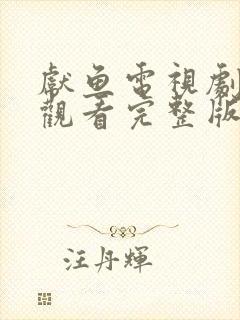 獻魚電視劇
觀看完整版
汪丹輝